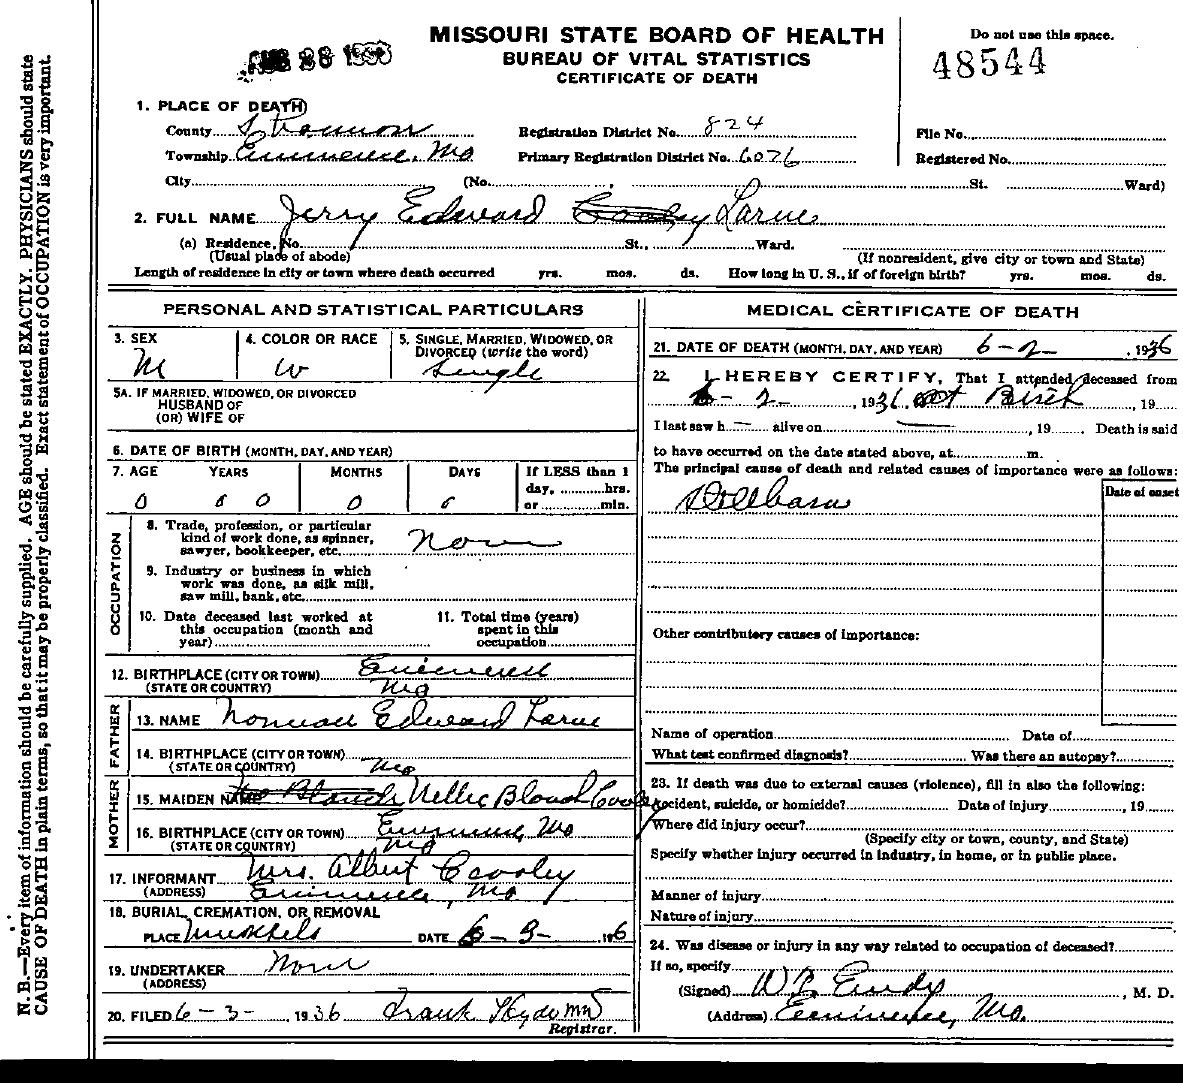 MISSOURI STATE BOARD OF HEALTH
BUREAU OF VITAL STATISTICS
CERTIFICATE OF DEATH
Do not use this space.
48544
1. PLACE OF DEATH
County Shannon Registration District No. 824 File No.
Township Eminence, Mo Primary Registration District No. 6076 Registered No.
City (No. , St. Ward)
2. FULL NAME Jerry Edward Cooley Larue
(a) Residence, No. St., Ward.
(Usual place of abode) (If nonresident, give city or town and State)
Length of residence in city or town where death occurred yrs. mos. ds. How long in U. S., if of foreign birth? yrs. mos. ds.
PERSONAL AND STATISTICAL PARTICULARS
3. SEX M
4. COLOR OR RACE W
5. SINGLE, MARRIED, WIDOWED, OR DIVORCED (write the word) Single
5A. IF MARRIED, WIDOWED, OR DIVORCED
HUSBAND OF
(OR) WIFE OF
6. DATE OF BIRTH (MONTH, DAY, AND YEAR)
7. AGE YEARS MONTHS DAYS If LESS than 1
day, hrs.
or min.
0 0 0
OCCUPATION
8. Trade, profession, or particular
kind of work done, as spinner,
sawyer, bookkeeper, etc. None
9. Industry or business in which
work was done, as silk mill,
saw mill, bank, etc.
10. Date deceased last worked at
this occupation (month and
year)
11. Total time (years)
spent in this
occupation
12. BIRTHPLACE (CITY OR TOWN) Eminence
(STATE OR COUNTRY) Mo
FATHER
13. NAME Edward Larue
14. BIRTHPLACE (CITY OR TOWN)
(STATE OR COUNTRY) Mo
MOTHER
15. MAIDEN NAME Nellie
16. BIRTHPLACE (CITY OR TOWN) Eminence, Mo
(STATE OR COUNTRY) Mo
17. INFORMANT Mrs. Albert Cooley
(ADDRESS) Eminence, Mo
18. BURIAL, CREMATION, OR REMOVAL
PLACE DATE 6-3- 1936
19. UNDERTAKER None
(ADDRESS)
20. FILED 6-3-, 1936 Frank Hyde MD
Registrar.
MEDICAL CERTIFICATE OF DEATH
21. DATE OF DEATH (MONTH, DAY, AND YEAR) 6-2-, 1936
22. I HEREBY CERTIFY, That I attended deceased from
6-2-, 1936 at Birth, 19
I last saw h — alive on —, 19 Death is said
to have occurred on the date stated above, at m.
The principal cause of death and related causes of importance were as follows:
Date of onset
Stillborn
Other contributory causes of importance:
Name of operation Date of
What test confirmed diagnosis? Was there an autopsy?
23. If death was due to external causes (violence), fill in also the following:
Accident, suicide, or homicide? Date of injury , 19
Where did injury occur?
(Specify city or town, county, and State)
Specify whether injury occurred in industry, in home, or in public place.
Manner of injury
Nature of injury
24. Was disease or injury in any way related to occupation of deceased?
If so, specify
(Signed) , M. D.
(Address) Eminence, Mo.
N. B.—Every item of information should be carefully supplied. AGE should be stated EXACTLY. PHYSICIANS should state
CAUSE OF DEATH in plain terms, so that it may be properly classified. Exact statement of OCCUPATION is very important.